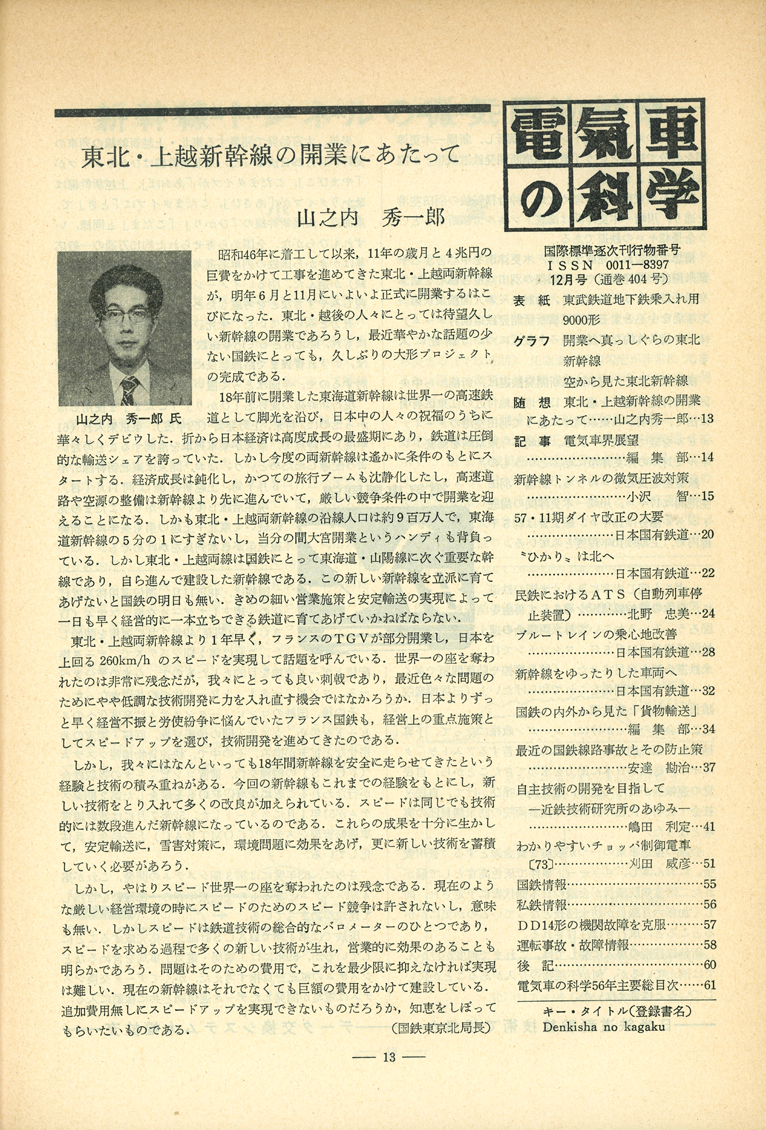 東北・上越新幹線の開業にあたって
山之内　秀一郎
山之内　秀一郎 氏
昭和46年に着工して以来，11年の歳月と4兆円の
巨費をかけて工事を進めてきた東北・上越両新幹線
が，明年6月と11月にいよいよ正式に開業するはこ
びになった．東北・越後の人々にとっては待望久し
い新幹線の開業であろうし，最近華やかな話題の少
ない国鉄にとっても，久しぶりの大形プロジェクト
の完成である．
18年前に開業した東海道新幹線は世界一の高速鉄
道として脚光を沿び，日本中の人々の祝福のうちに
華々しくデビウした．折から日本経済は高度成長の最盛期にあり，鉄道は圧倒
的な輸送シェアを誇っていた．しかし今度の両新幹線は遙かに条件のもとにス
タートする．経済成長は鈍化し，かつての旅行ブームも沈静化したし，高速道
路や空源の整備は新幹線より先に進んでいて，厳しい競争条件の中で開業を迎
えることになる．しかも東北・上越両新幹線の沿線人口は約9百万人で，東海
道新幹線の5分の1にすぎないし，当分の間大宮開業というハンディも背負っ
ている．しかし東北・上越両線は国鉄にとって東海道・山陽線に次ぐ重要な幹
線であり，自ら進んで建設した新幹線である．この新しい新幹線を立派に育て
あげないと国鉄の明日も無い．きめの細い営業施策と安定輸送の実現によって
一日も早く経営的に一本立ちできる鉄道に育てあげていかねばならない．
東北・上越両新幹線より1年早く，フランスのTGVが部分開業し，日本を
上回る260km/hのスピードを実現して話題を呼んでいる．世界一の座を奪わ
れたのは非常に残念だが，我々にとっても良い刺戟であり，最近色々な問題の
ためにやや低調な技術開発に力を入れ直す機会ではなかろうか．日本よりずっ
と早く経営不振と労使紛争に悩んでいたフランス国鉄も，経営上の重点施策と
してスピードアップを選び，技術開発を進めてきたのである．
しかし，我々にはなんといっても18年間新幹線を安全に走らせてきたという
経験と技術の積み重ねがある．今回の新幹線もこれまでの経験をもとにし，新
しい技術をとり入れて多くの改良が加えられている．スピードは同じでも技術
的には数段進んだ新幹線になっているのである．これらの成果を十分に生かし
て，安定輸送に，雪害対策に，環境問題に効果をあげ，更に新しい技術を蓄積
していく必要があろう．
しかし，やはりスピード世界一の座を奪われたのは残念である．現在のよう
な厳しい経営環境の時にスピードのためのスピード競争は許されないし，意味
も無い．しかしスピードは鉄道技術の総合的なバロメーターのひとつであり，
スピードを求める過程で多くの新しい技術が生れ，営業的に効果のあることも
明らかであろう．問題はそのための費用で，これを最少限に抑えなければ実現
は難しい．現在の新幹線はそれでなくても巨額の費用をかけて建設している．
追加費用無しにスピードアップを実現できないものだろうか，知恵をしぼって
もらいたいものである．　（国鉄東京北局長）
電氣車
の科学
国際標準逐次刊行物番号
ISSN 0011―8397
12月号（通巻404号）
表　紙　東武鉄道地下鉄乗入れ用
9000形
グラフ　開業へ真っしぐらの東北
新幹線
空から見た東北新幹線
随　想　東北・上越新幹線の開業
にあたって……山之内秀一郎…13
記　事　電気車界展望
……………………編　集　部…14
新幹線トンネルの微気圧波対策
……………………小沢　　智…15
57・11期ダイヤ改正の大要
…………………日本国有鉄道…20
〝ひかり〟は北へ
…………………日本国有鉄道…22
民鉄におけるATS（自動列車停
止装置）…………北野　忠美…24
ブルートレインの乗心地改善
…………………日本国有鉄道…28
新幹線をゆったりした車両へ
…………………日本国有鉄道…32
国鉄の内外から見た「貨物輸送」
……………………編　集　部…34
最近の国鉄線路事故とその防止策
……………………安達　勘治…37
自主技術の開発を目指して
―近鉄技術研究所のあゆみ―
……………………嶋田　利定…41
わかりやすいチョッパ制御電車
〔73〕……………刈田　威彦…51
国鉄情報……………………………55
私鉄情報……………………………56
DD14形の機関故障を克服………57
運転事故・故障情報………………58
後　記………………………………60
電気車の科学56年主要総目次……61
キー・タイトル（登録書名）
Denkisha no kagaku
― 13 ―